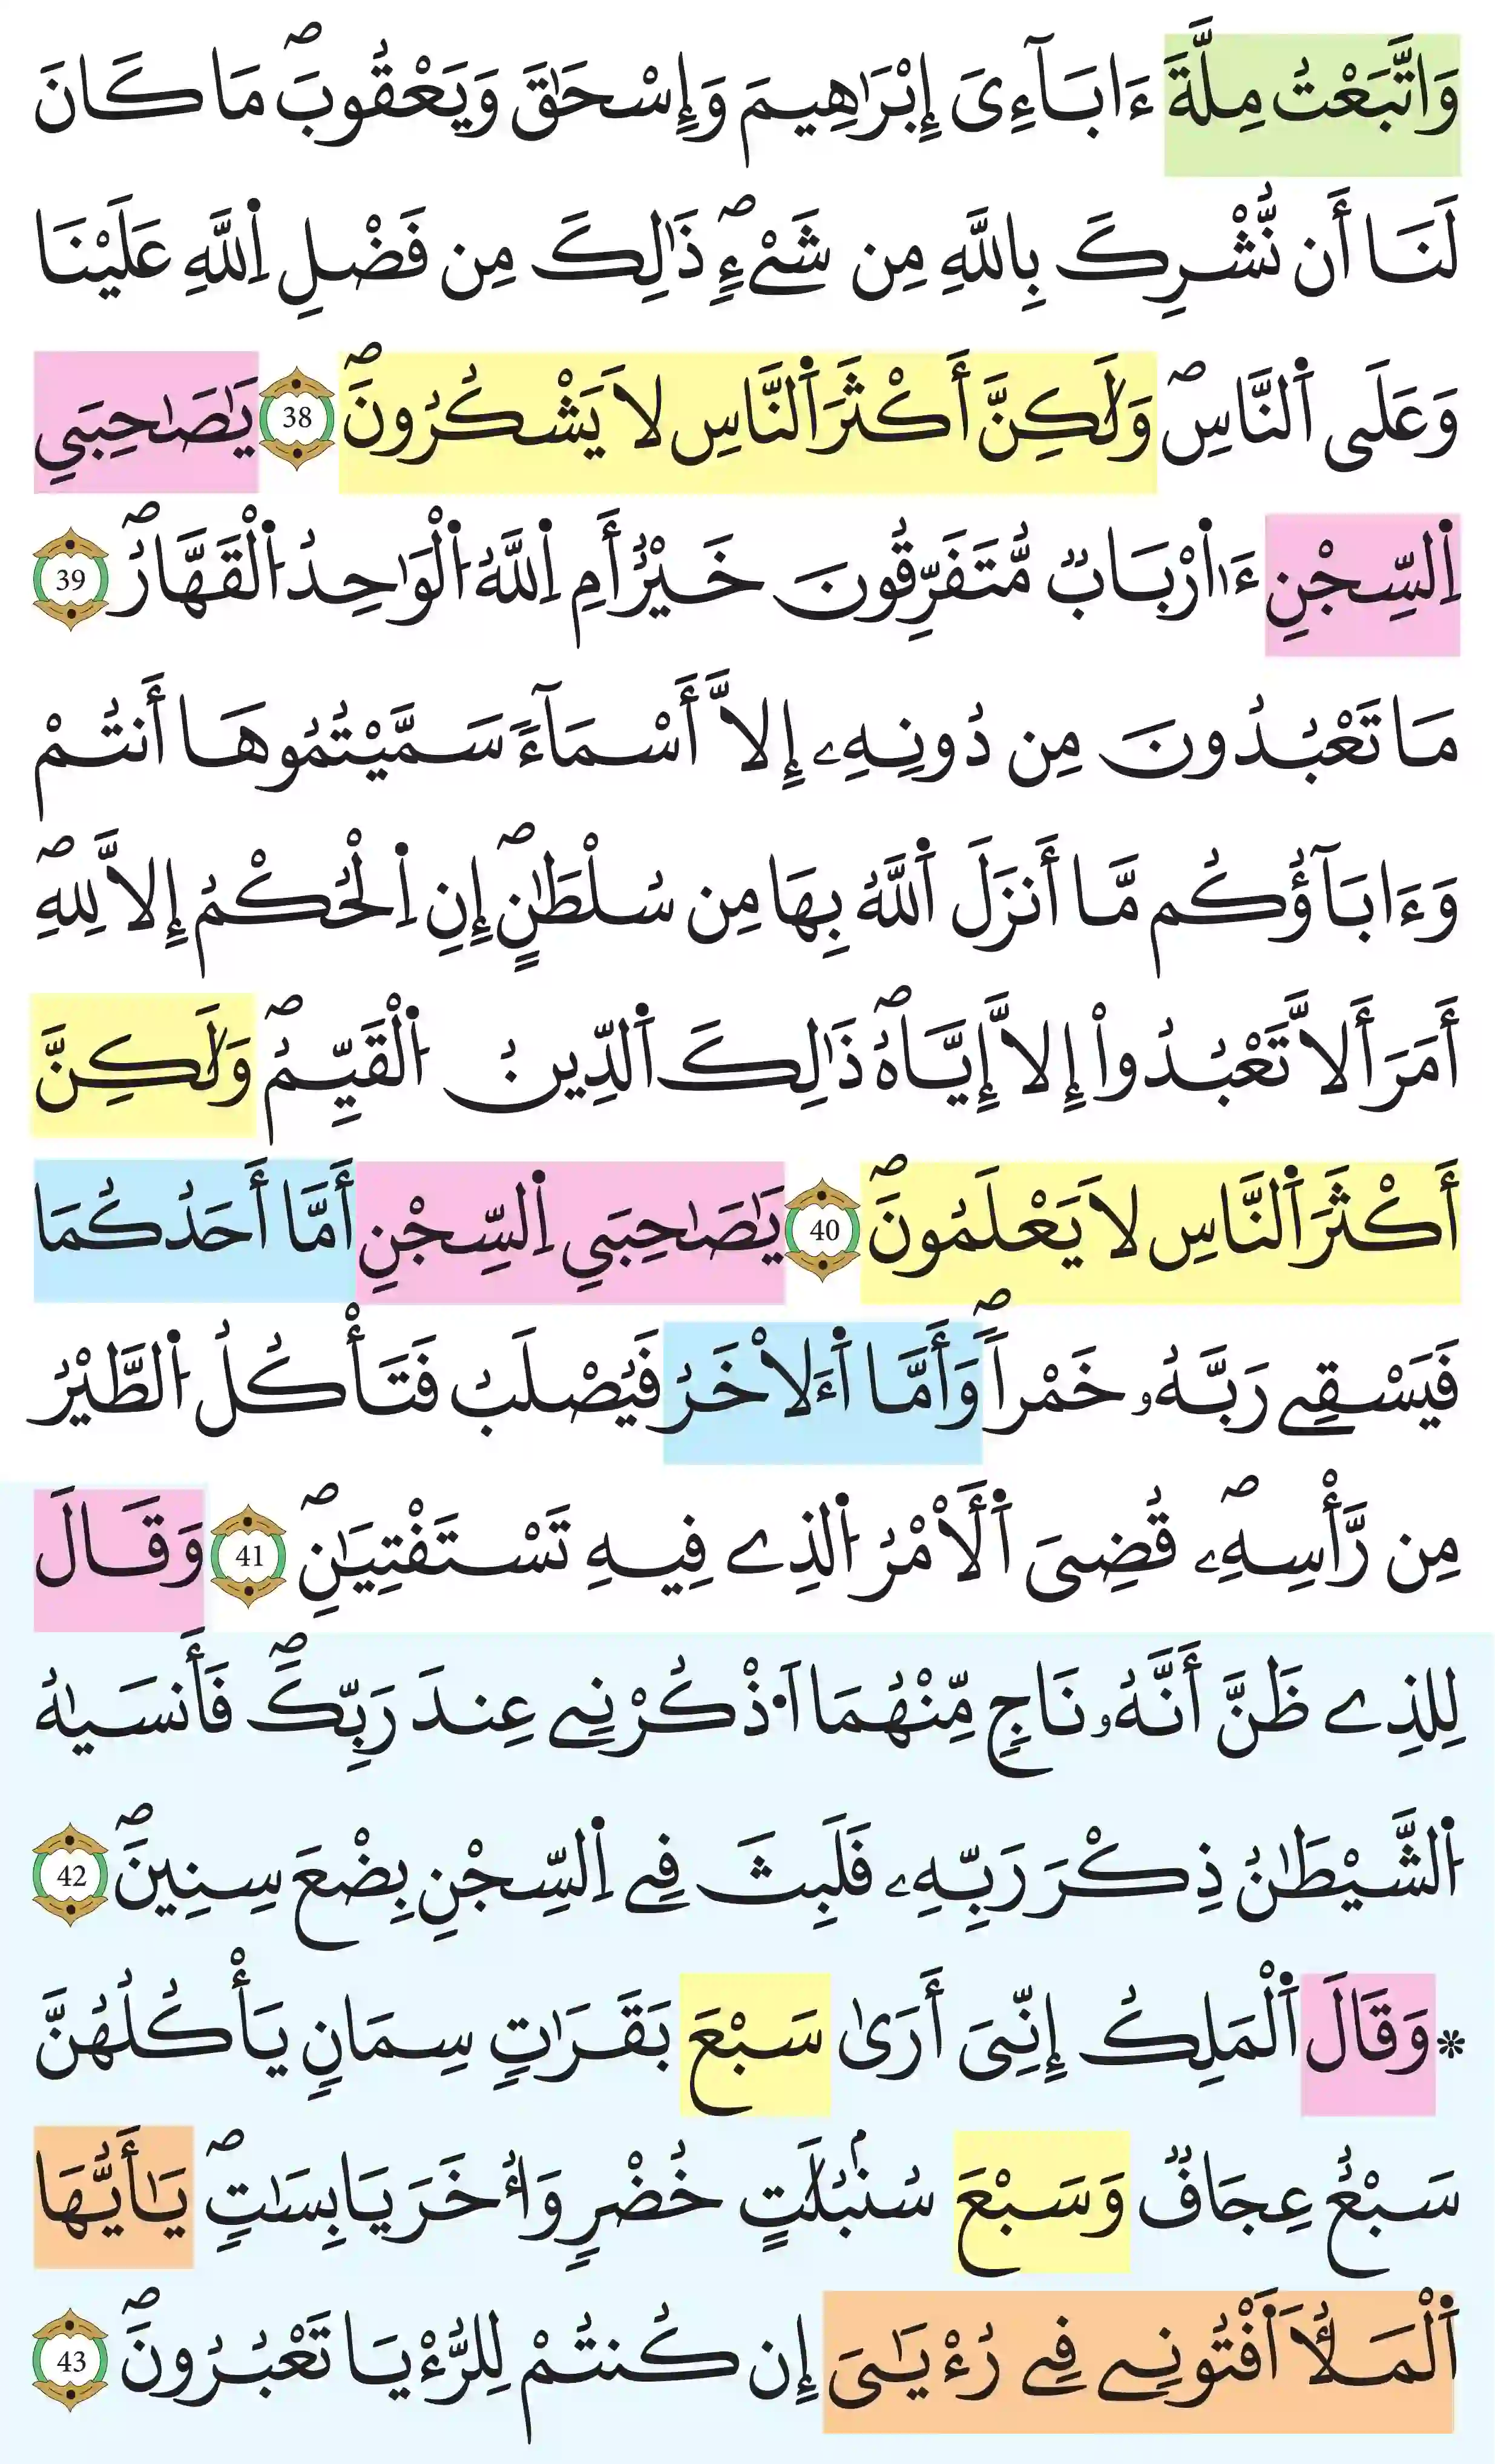 وَاتَّبَعْتُ مِلَّةَ ءَابَآءِىَ إِبْرَٰهِيمَ وَإِسْحَٰقَ وَيَعْقُوبَۖ مَا كَانَ
لَنَا أَن نُّشْرِكَ بِاللَّهِ مِن شَےْءٖۖ ذَٰلِكَ مِن فَضْلِ اِ۬للَّهِ عَلَيْنَا
وَعَلَى اَ۬لنَّاسِۖ وَلَٰكِنَّ أَكْثَرَ اَ۬لنَّاسِ لَا يَشْكُرُونَۖ 38 يَٰصَٰحِبَيِ
اِ۬لسِّجْنِ ءَا۬رْبَابٞ مُّتَفَرِّقُونَ خَيْرٌ أَمِ اِ۬للَّهُ اُ۬لْوَٰحِدُ اُ۬لْقَهَّارُۖ 39
مَا تَعْبُدُونَ مِن دُونِهِۦ إِلَّا أَسْمَآءٗ سَمَّيْتُمُوهَا أَنتُمْ
وَءَابَآؤُكُم مَّا أَنزَلَ اَ۬للَّهُ بِهَا مِن سُلْطَٰنٍۖ إِنِ اِ۬لْحُكْمُ إِلَّا لِلهِۖ
أَمَرَ أَلَّا تَعْبُدُواْ إِلَّا إِيَّاهُۖ ذَٰلِكَ اَ۬لدِّينُ اُ۬لْقَيِّمُۖ وَلَٰكِنَّ
أَكْثَرَ اَ۬لنَّاسِ لَا يَعْلَمُونَۖ 40 يَٰصَٰحِبَيِ اِ۬لسِّجْنِ أَمَّا أَحَدُكُمَا
فَيَسْقِے رَبَّهُۥ خَمْراٗۖ وَأَمَّا اَ۬لَاخَرُ فَيُصْلَبُ فَتَأْكُلُ اُ۬لطَّيْرُ
مِن رَّأْسِهِۦۖ قُضِىَ اَ۬لَامْرُ اُ۬لذِے فِيهِ تَسْتَفْتِيَٰنِۖ 41 وَقَالَ
لِلذِے ظَنَّ أَنَّهُۥ نَاجٖ مِّنْهُمَا اَ۟ذْكُرْنِے عِندَ رَبِّكَۖ فَأَنسَيٰهُ
اُ۬لشَّيْطَٰنُ ذِكْرَ رَبِّهِۦ فَلَبِثَ فِے اِ۬لسِّجْنِ بِضْعَ سِنِينَۖ 42
* وَقَالَ اَ۬لْمَلِكُ إِنِّىَ أَرَىٰ سَبْعَ بَقَرَٰتٖ سِمَانٖ يَأْكُلُهُنَّ
سَبْعٌ عِجَافٞ وَسَبْعَ سُنۢبُلَٰتٍ خُضْرٖ وَأُخَرَ يَابِسَٰتٖۖ يَٰأَيُّهَا
اَ۬لْمَلَأُ اَ۬فْتُونِے فِے رُءْيَٰىَ إِن كُنتُمْ لِلرُّءْيَا تَعْبُرُونَۖ 43